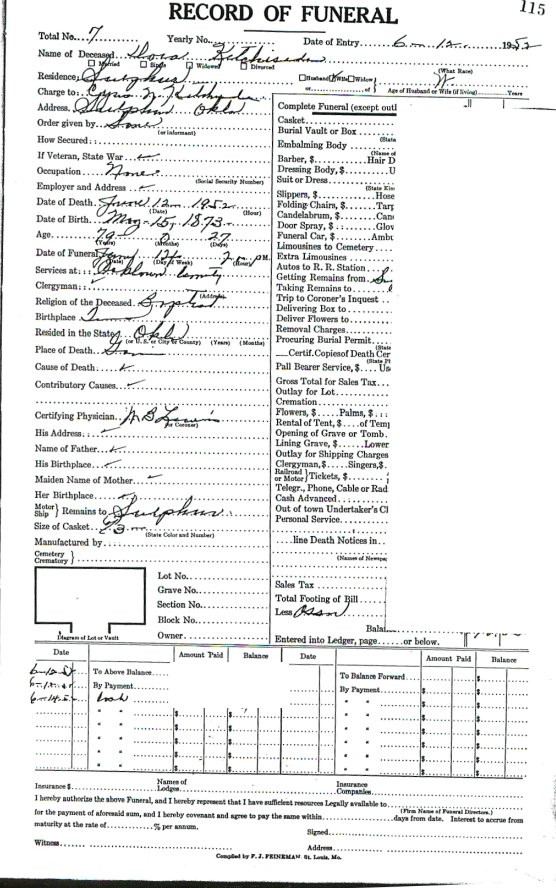 115
RECORD OF FUNERAL
Total No. 7 Yearly No. Date of Entry 6-12 1952
Name of Deceased
Married Single Widowed Divorced
(What Race)
Residence; Sulphur Husband Wife Widow W
or of Age of Husband or Wife (if living) Years
Charge to
Address. Sulphur Okla
Order given by Same
(or informant)
How Secured:
If Veteran, State War
Occupation None
(Social Security Number)
Employer and Address
Date of Death: June 12 1952
(Date) (Hour)
Date of Birth May 15, 1873
Age 79 0 27
(Years) (Months) (Days)
Date of Funeral 2 PM.
(Date) (Day of Week) (Hour)
Services at:
(Address)
Clergyman:
Religion of the Deceased Baptist
Birthplace
Resided in the State Okla
(or U.S. or City or County) (Years) (Months)
Place of Death
Cause of Death
Contributory Causes
Certifying Physician
(or Coroner)
His Address:
Name of Father
His Birthplace
Maiden Name of Mother
Her Birthplace
Motor Ship } Remains to Sulphur
Size of Casket
(State Color and Number)
Manufactured by
Cemetery Crematory }
Complete Funeral (except outl
Casket
Burial Vault or Box
(State
Embalming Body
(Name of
Barber, $ Hair D
Dressing Body, $ U
Suit or Dress
(State Kin
Slippers, $ Hose
Folding Chairs, $ Tarp
Candelabrum, $ Can
Door Spray, $ Glov
Funeral Car, $ Ambu
Limousines to Cemetery
Extra Limousines
Autos to R. R. Station
Getting Remains from
Taking Remains to
Trip to Coroner's Inquest
Delivering Box to
Deliver Flowers to
Removal Charges
Procuring Burial Permit
(State
Certif. Copies of Death Cer
(State Pl
Pall Bearer Service, $ Us
Gross Total for Sales Tax
Outlay for Lot
Cremation
Flowers, $ Palms, $
Rental of Tent, $ of Temp
Opening of Grave or Tomb
Lining Grave, $ Lower
Outlay for Shipping Charges
Clergyman, $ Singers, $
Railroad or Motor } Tickets, $
Telegr., Phone, Cable or Rad
Cash Advanced
Out of town Undertaker's Cl
Personal Service
line Death Notices in
(Names of Newspa
Sales Tax
Total Footing of Bill
Less
Balan
Entered into Ledger, page or below.
Lot No.
Grave No.
Section No.
Block No.
Owner
Diagram of Lot or Vault
Date Amount Paid Balance Date Amount Paid Balance
6-12-52 To Above Balance To Balance Forward $
By Payment By Payment $
6-14-52 Cash " " $
" " $ $ " " $
" " $ " " $
" " $ " " $
" " $ " " $
" " $ " " $
Insurance $ Names of Lodges Insurance Companies
I hereby authorize the above Funeral, and I hereby represent that I have sufficient resources Legally available to
(Firm Name of Funeral Directors.)
for the payment of aforesaid sum, and I hereby covenant and agree to pay the same within days from date. Interest to accrue from
maturity at the rate of % per annum. Signed
Witness Address
Compiled by F. J. FEINEMAN, St. Louis, Mo.